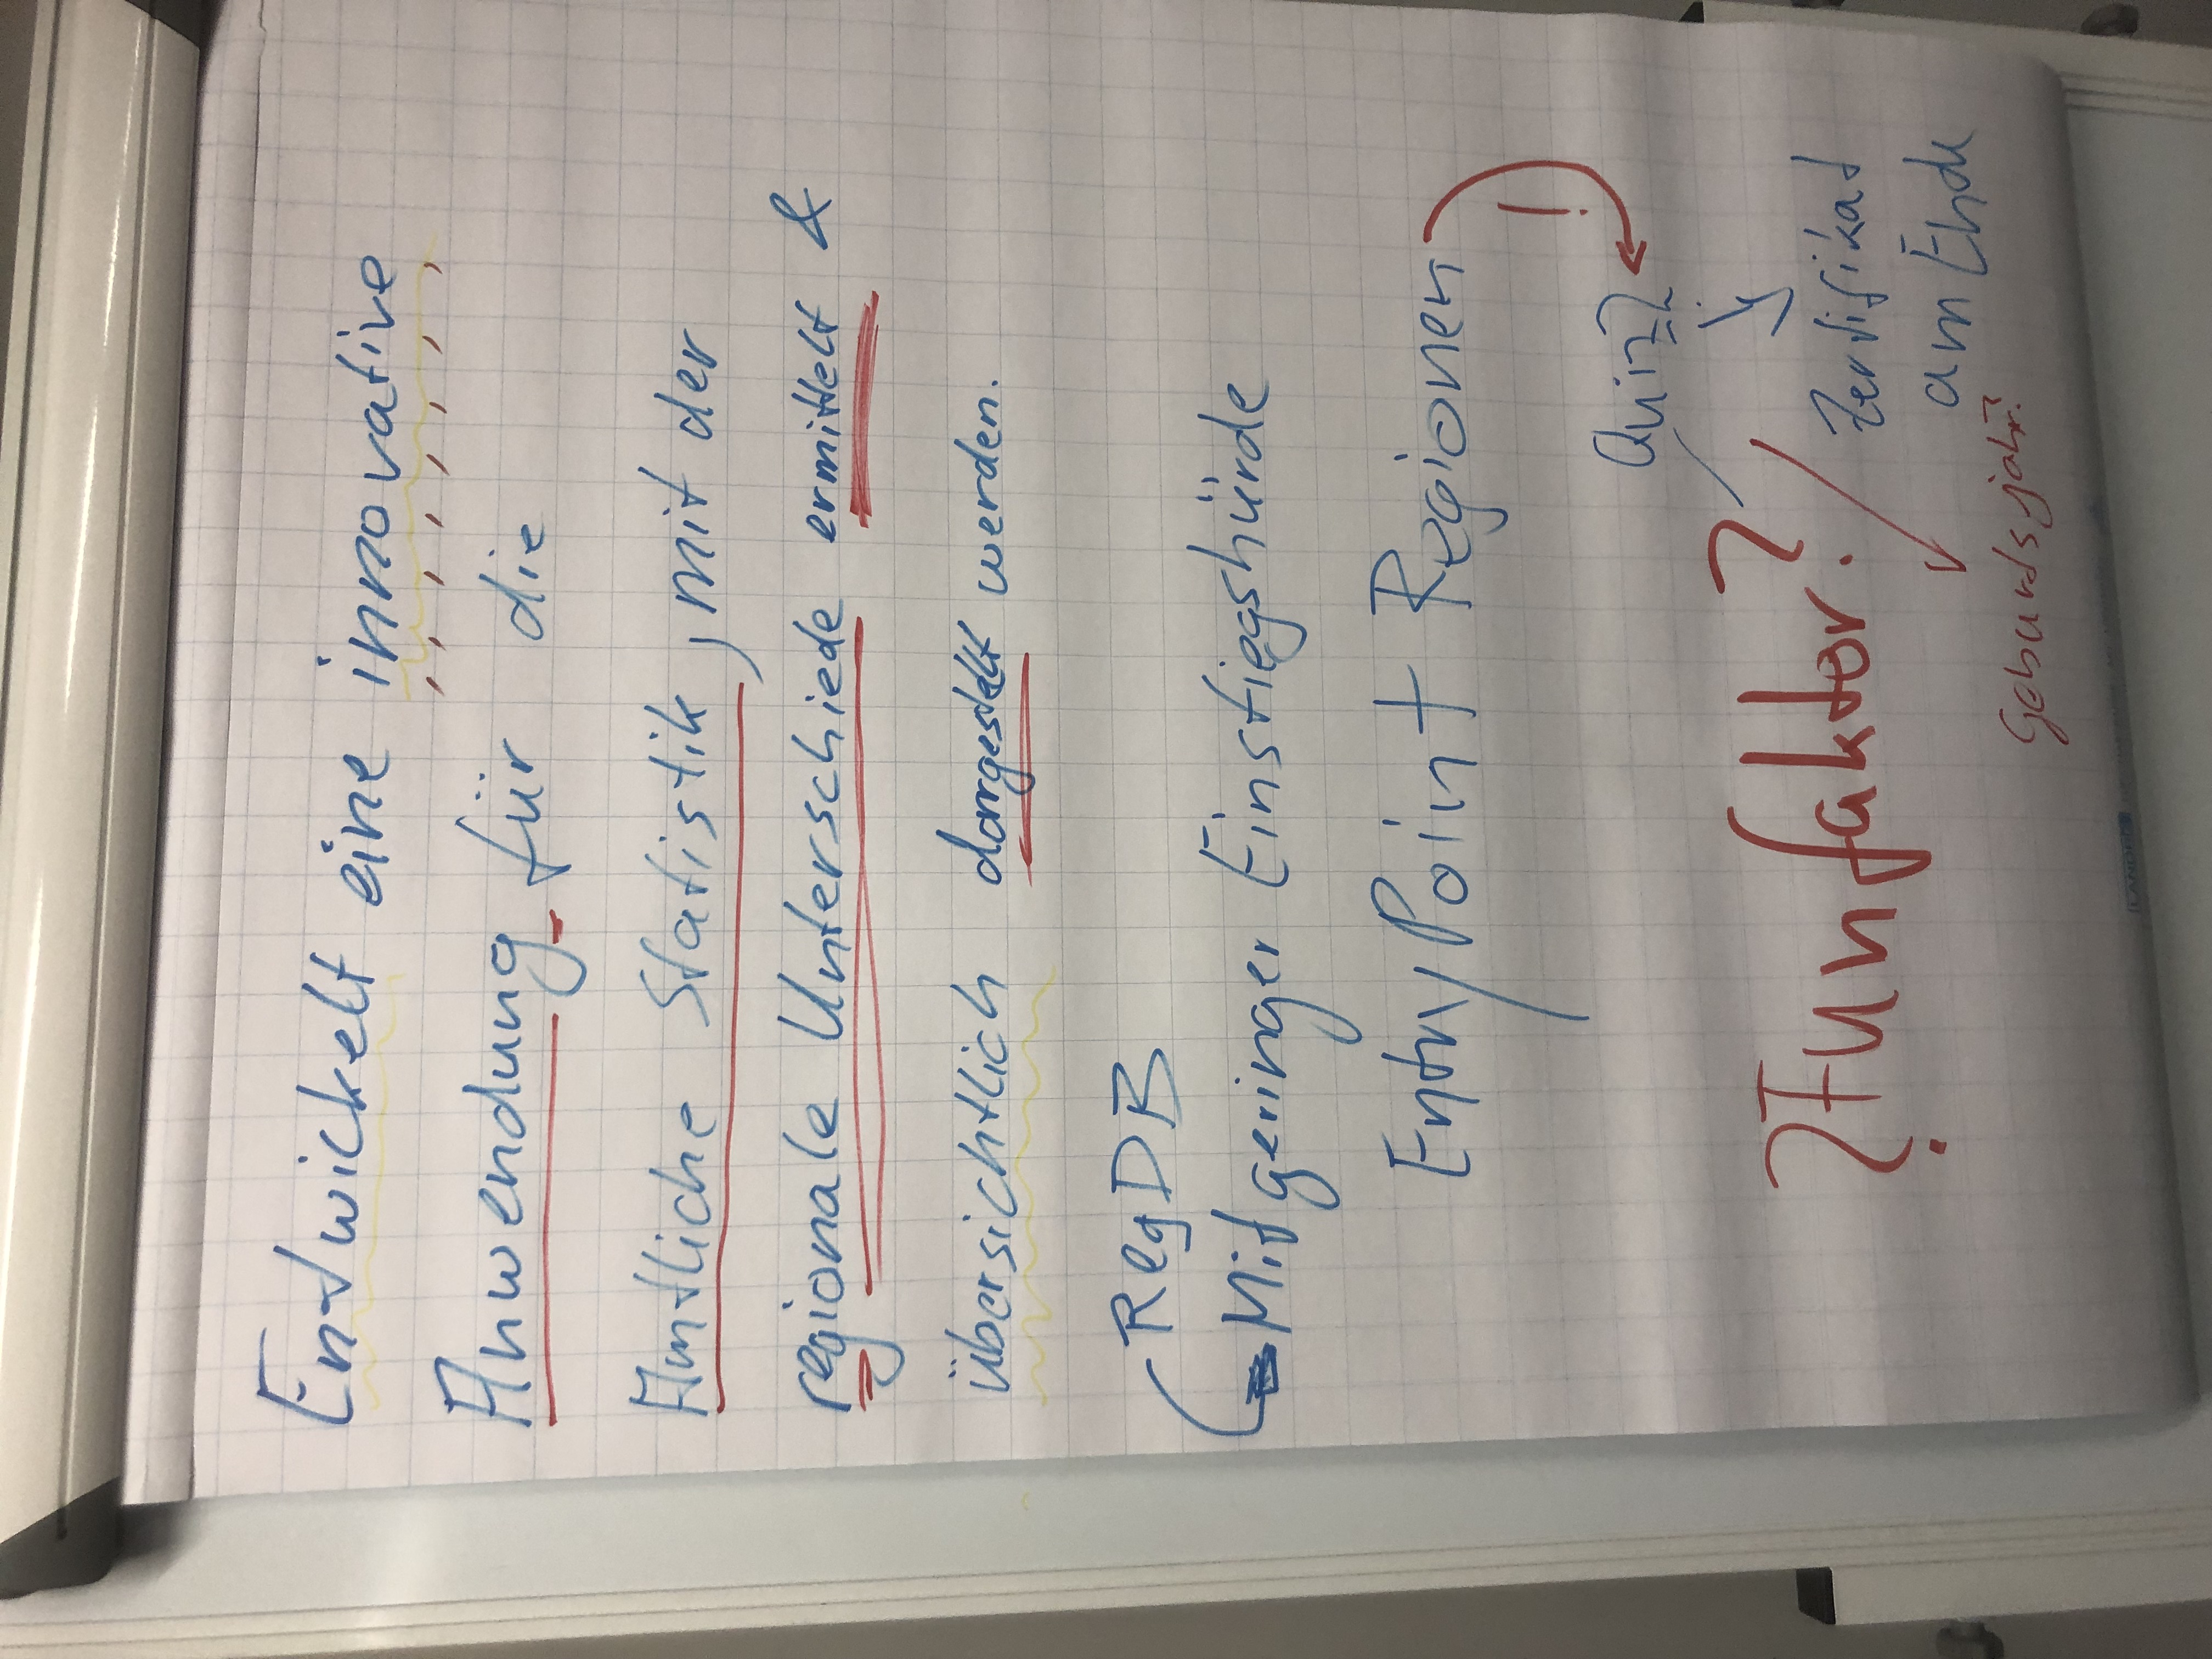 Entwickelt eine innovative
Anwendung für die
Amtliche Statistik, mit der
regionale Unterschiede ermittelt &
übersichtlich dargestellt werden.
RegDB
Mit geringer Einstiegshürde
EntryPoint Regionen
!
Quiz?
?Funfaktor?
Zertifikat
am Ende
Geburtsjahr?